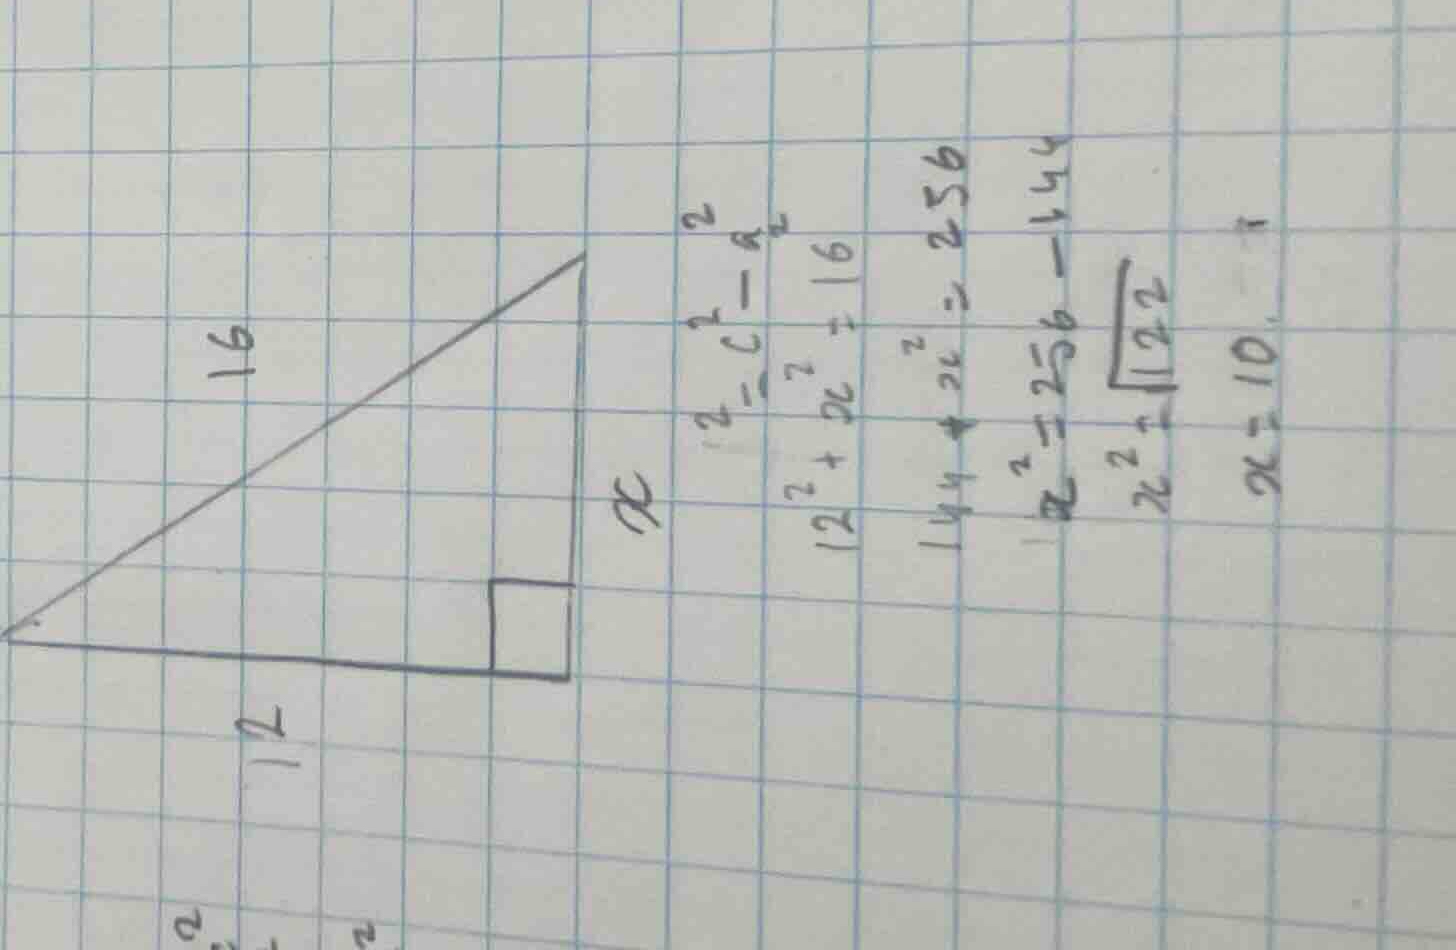 16
12
x
² = c² - a²
12² + x² = 16²
144 + x² = 256
x² = 256 - 144
x² = √122
x = 10.